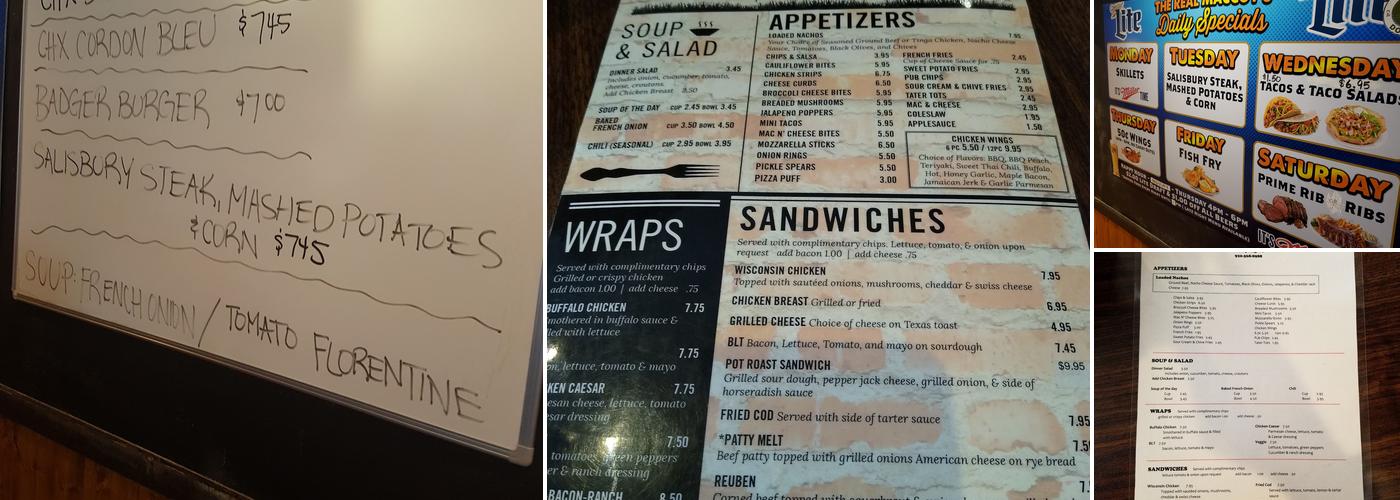 CHX CORDON BLEU $745
BADGER BURGER $700
SALISBURY STEAK, MASHED POTATOES
& CORN $745
SOUP: FRENCH ONION / TOMATO FLORENTINE
SOUP
& SALAD
DINNER SALAD 3.45
Includes onion, cucumber, tomato,
cheese, croutons.
Add Chicken Breast 3.50
SOUP OF THE DAY CUP 2.45 BOWL 3.45
BAKED
FRENCH ONION CUP 3.50 BOWL 4.50
CHILI (SEASONAL) CUP 2.95 BOWL 3.95
APPETIZERS
LOADED NACHOS 7.95
Your Choice of Seasoned Ground Beef or Tinga Chicken, Nacho Cheese
Sauce, Tomatoes, Black Olives, and Chives
CHIPS & SALSA 3.95
CAULIFLOWER BITES 5.95
CHICKEN STRIPS 6.75
CHEESE CURDS 6.50
BROCCOLI CHEESE BITES 5.95
BREADED MUSHROOMS 5.95
JALAPENO POPPERS 5.95
MINI TACOS 5.50
MAC N' CHEESE BITES 5.50
MOZZARELLA STICKS 6.50
ONION RINGS 5.50
PICKLE SPEARS 5.50
PIZZA PUFF 3.00
FRENCH FRIES 2.45
Cup of Cheese Sauce for .75
SWEET POTATO FRIES 2.95
PUB CHIPS 2.95
SOUR CREAM & CHIVE FRIES 2.95
TATER TOTS 2.45
MAC & CHEESE 2.95
COLESLAW 1.95
APPLESAUCE 1.50
CHICKEN WINGS
6 PC 5.50 / 12PC 9.95
Choice of Flavors: BBQ, BBQ Peach,
Teriyaki, Sweet Thai Chili, Buffalo,
Hot, Honey Garlic, Maple Bacon,
Jamaican Jerk & Garlic Parmesan
WRAPS
Served with complimentary chips
Grilled or crispy chicken
add bacon 1.00 | add cheese .75
BUFFALO CHICKEN 7.75
mothered in buffalo sauce &
led with lettuce
7.75
on, lettuce, tomato & mayo
KEN CAESAR 7.75
esan cheese, lettuce, tomato
sar dressing
7.50
tomatoes, green peppers
er & ranch dressing
BACON-RANCH 8.50
SANDWICHES
Served with complimentary chips. Lettuce, tomato, & onion upon
request add bacon 1.00 | add cheese .75
WISCONSIN CHICKEN 7.95
Topped with sautéed onions, mushrooms, cheddar & swiss cheese
CHICKEN BREAST Grilled or fried 6.95
GRILLED CHEESE Choice of cheese on Texas toast 4.95
BLT Bacon, Lettuce, Tomato, and mayo on sourdough 7.45
POT ROAST SANDWICH $9.95
Grilled sour dough, pepper jack cheese, grilled onion, & side of
horseradish sauce
FRIED COD Served with side of tarter sauce 7.95
*PATTY MELT 7.5
Beef patty topped with grilled onions American cheese on rye bread
REUBEN
Lite
THE REAL
Daily Specials
MONDAY
SKILLETS
IT'S Miller TIME
TUESDAY
SALISBURY STEAK,
MASHED POTATOES
& CORN
WEDNESDAY
$1.50 $6.95
TACOS & TACO SALADS
THURSDAY
50¢ WINGS
FRIDAY
FISH FRY
SATURDAY
PRIME RIB RIBS
THURSDAY 4PM - 6PM
$1.00 OFF ALL BEERS
IT'S
APPETIZERS
Loaded Nachos
SOUP & SALAD
Dinner Salad
includes onion, cucumber, tomato, cheese, croutons
Add Chicken Breast
Soup of the day
Baked French Onion
Chili
Cup
Bowl
WRAPS Served with complimentary chips
grilled or crispy chicken
Buffalo Chicken
Smothered in buffalo sauce & filled
with lettuce
BLT
bacon, lettuce, tomato & mayo
Chicken Caesar
Parmesan cheese, lettuce, tomato
& Caesar dressing
Veggie
Lettuce, tomatoes, green peppers
Cucumber & ranch dressing
SANDWICHES Served with complimentary chips
Wisconsin Chicken
Fried Cod